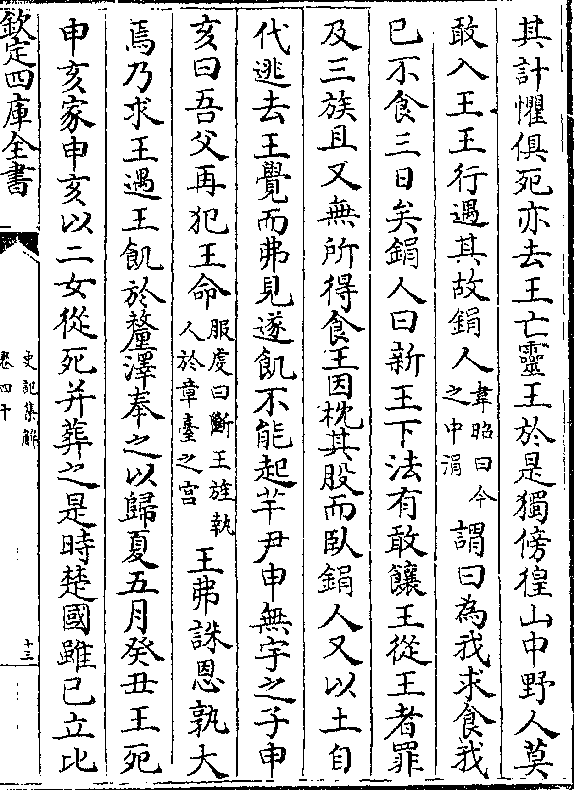 其計懼俱死亦去王亡靈王於是獨傍徨山中野人莫
敢入王王行遇其故鋗人韋昭曰今之中涓謂曰為我求食我
已不食三日矣鋗人曰新王下法有敢饟王從王者罪
及三族且又無所得食王因枕其股而臥鋗人又以土自
代逃去王覺而弗見遂飢不能起芋尹申無宇之子申
亥曰吾父再犯王命服虔曰斷王旌執人於章臺之宫王弗誅恩孰大
焉乃求王遇王飢於釐澤奉之以歸夏五月癸丑王死
申亥家申亥以二女從死并葬之是時楚國雖已立比
欽定四庫全書
史記集解
卷四十
十三